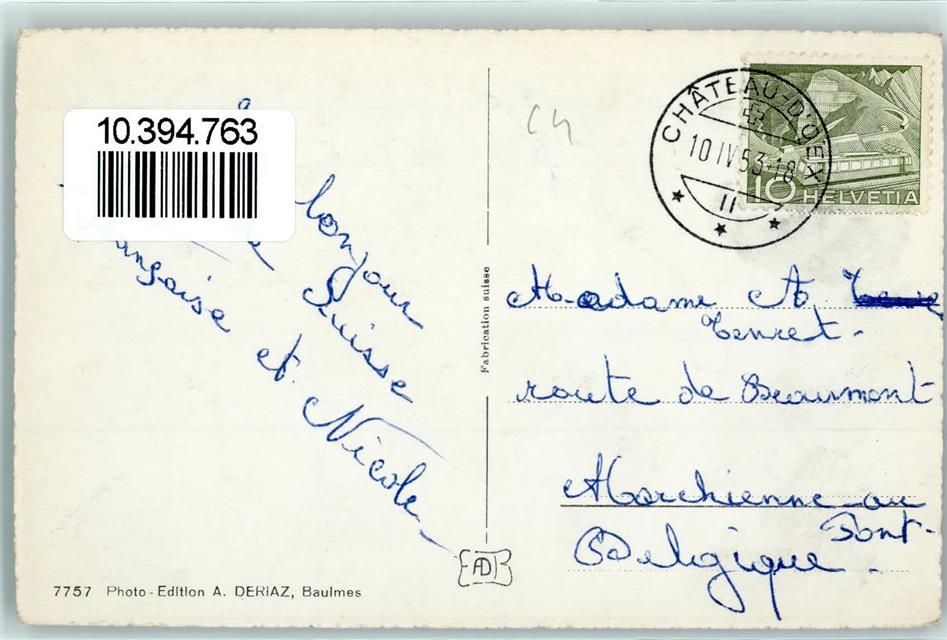 10.394.763
bonjour
Suisse
et Nicole
CHÂTEAU-D'OEX
10 IV 53-18
II
10 HELVETIA
Fabrication suisse
Madame A.
Tenret-
route de Beaumont
Marchienne-au
Pont-
Belgique.
AD
7757 Photo-Edition A. DERIAZ, Baulmes